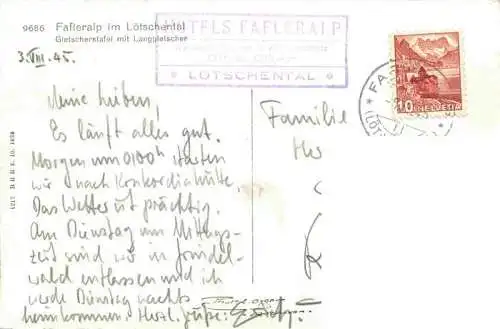 9686 Fafleralp im Lötschental
Gletscherstafel mit Langgletscher
HOTELS FAFLERALP
LÖTSCHENTAL
3.VIII.45.
Meine Lieben,
Es läuft alles gut.
Morgen um 0100h starten
wir nach Konkordiahütte.
Das Wetter ist prächtig.
Am Dienstag um Mittags-
zeit sind wir in Grindel-
wald entlassen und ich
werde Dienstag nachts
heimkommen. Herzl. Grüsse:
Familie
10 HELVETIA